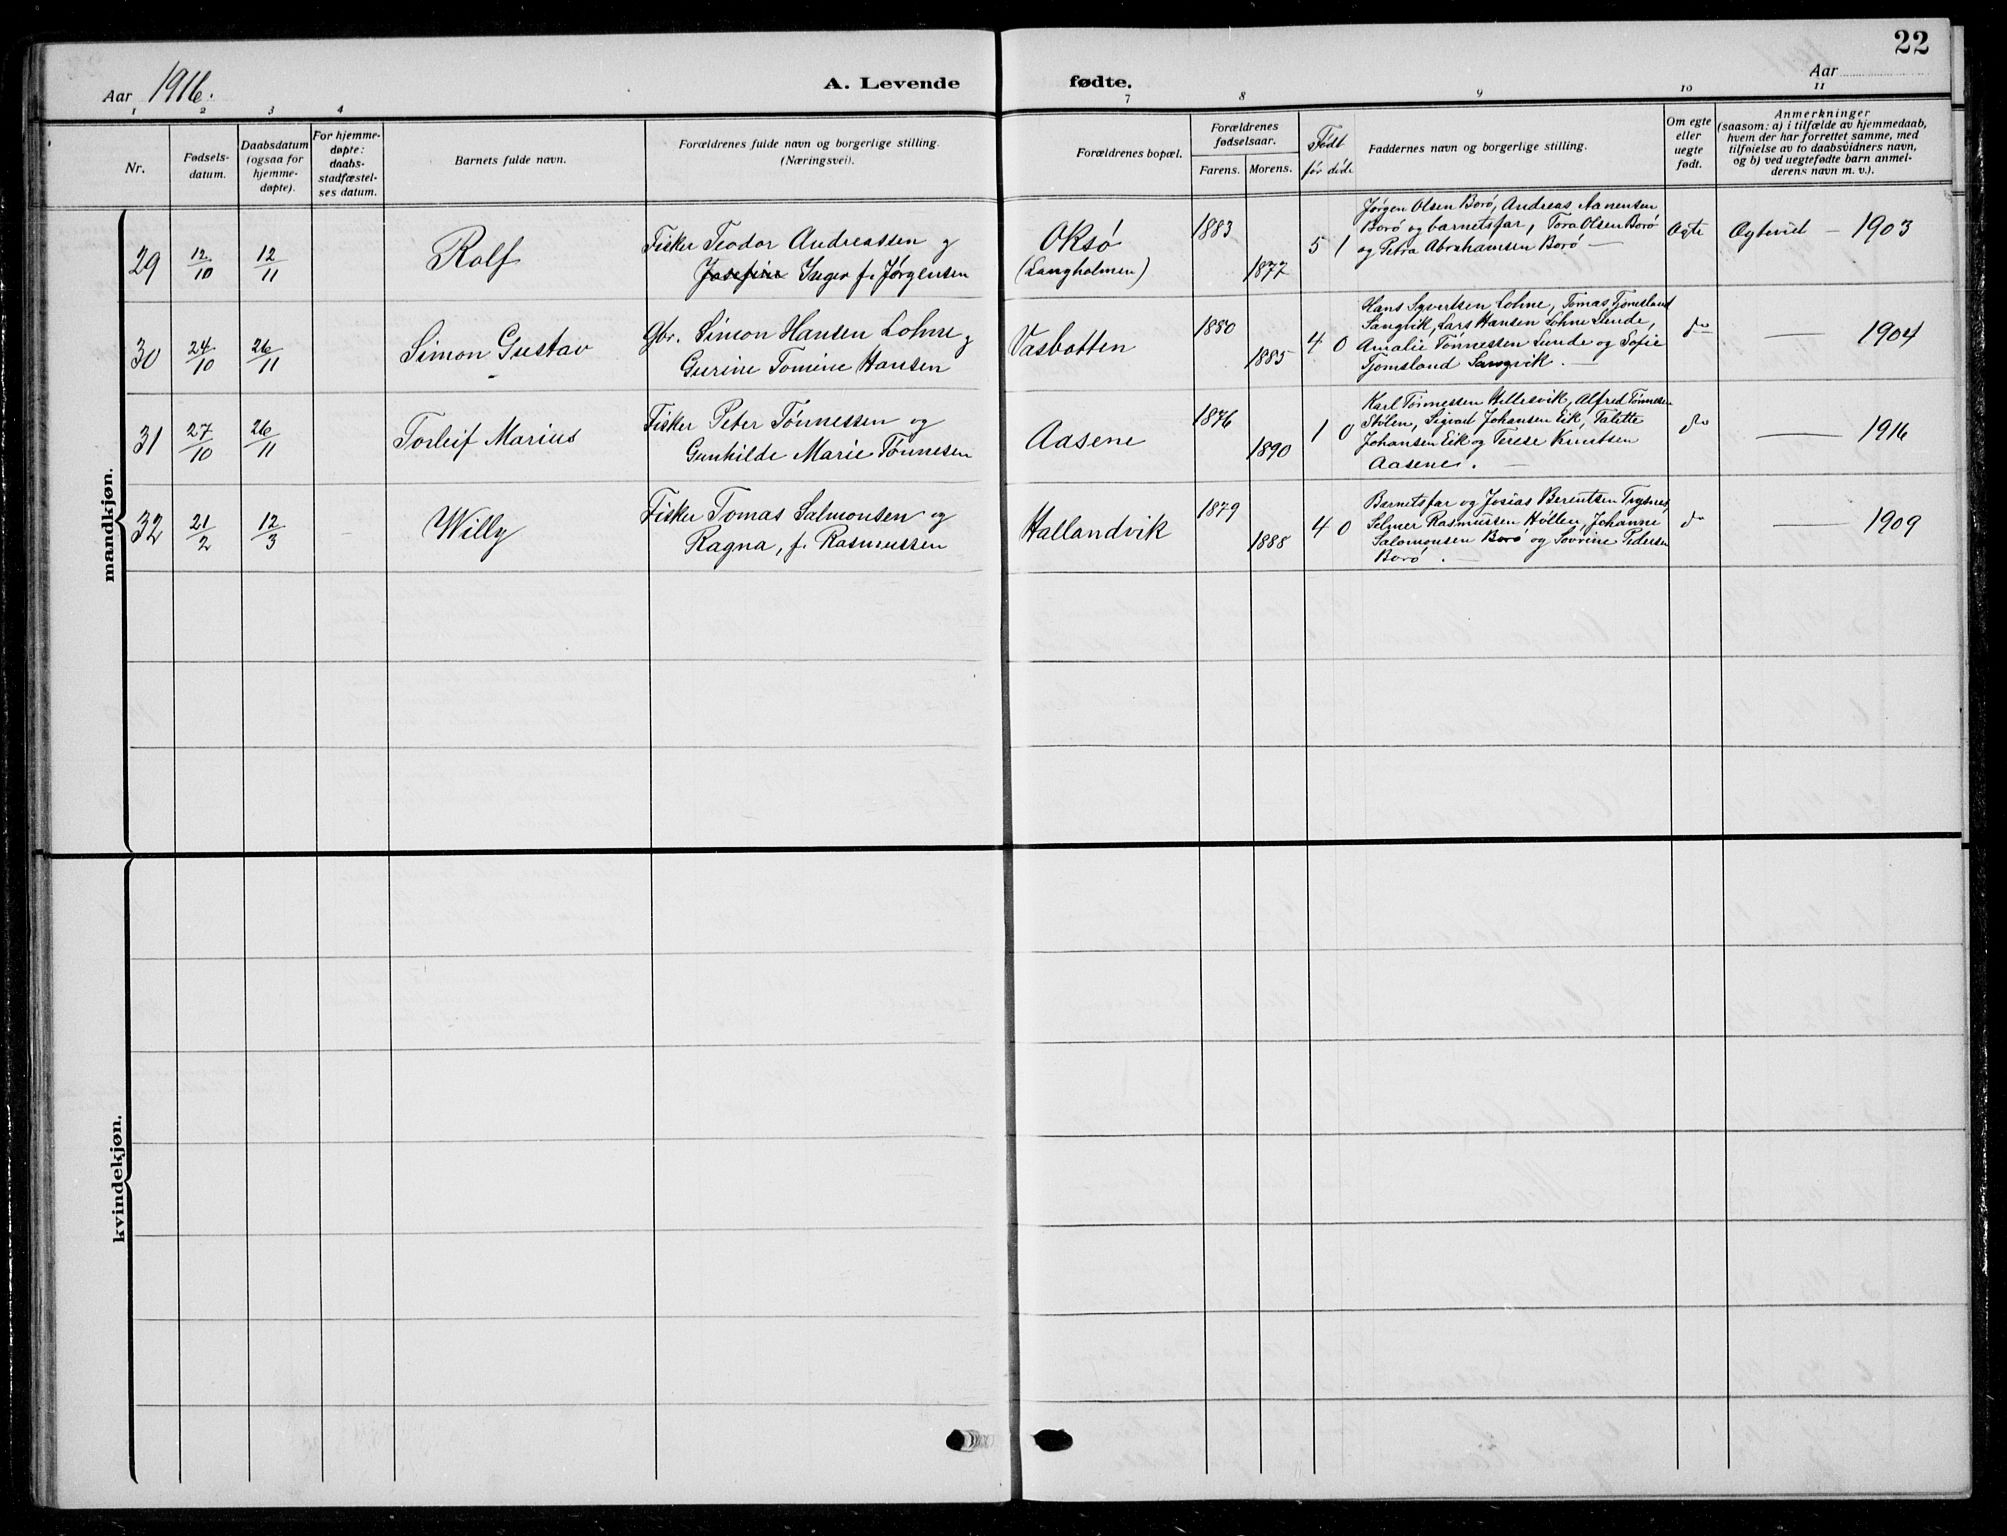 22
Aar 1916.
A. Levende fødte.
Aar
1 2 3 4 7 8 9 10 11
Nr.
Fødsels-
datum.
Daabsdatum
(ogsaa for
hjemme-
døpte).
For hjemme-
døpte:
daabs-
stadfæstel-
ses datum.
Barnets fulde navn.
Forældrenes fulde navn og borgerlige stilling.
(Næringsvei).
Forældrenes bopæl.
Forældrenes
fødselsaar.
Farens. Morens.
Født
før døde
Faddernes navn og borgerlige stilling.
Om egte
eller
uegte
født.
Anmerkninger
(saasom: a) i tilfælde av hjemmedaab,
hvem der har forrettet samme, med
tilføielse av to daabsvidners navn,
og b) ved uegtefødte barn anmel-
derens navn m. v.).
mandkjøn.
29 12/10 12/11 Rolf
Fisker Teodor Andreassen og
Josefine Inger f. Jørgensen
Oksø
(Langholmen)
1883
1877
5 1
Jørgen Olsen Borø, Andreas Aanensen
Borø og barnetsfar, Tora Olsen Borø
og Petra Abrahamsen Borø —
Ogte
Ogtevid — 1903
30 24/10 26/11 Simon Gustav
Gbr. Simon Hansen Lohne og
Gurine Tomine Hansen
Vasbotten
1880
1885
4 0
Hans Syvertsen Lohne, Tomas Tjomsland
Sangvik, Lars Hansen Lohne Lunde,
Amalie Tønnessen Lunde og Sofie
Tjomsland Sangvik. —
do
— 1904
31 27/10 26/11 Torleif Marius
Fisker Peter Tønnessen og
Gunhilde Marie Tønnesen
Aasene
1876
1890
1 0
Karl Tønnessen Hillesvik, Alfred Tønnesen
Stølen, Sigvad Johansen Eik, Talette
Johansen Eik og Terese Knutsen
Aasene. —
do
— 1916
32 21/2 12/3 Willy
Fisker Tomas Salmonsen og
Ragna, f. Rasmussen
Hallandvik
1879
1888
4 0
Barnetsfar og Josias Berentsen Trysnes,
Selmer Rasmussen Høllen, Johanne
Salomonsen Borø og Sovrine Pedersen
Borø. —
do
— 1909
kvindekjøn.